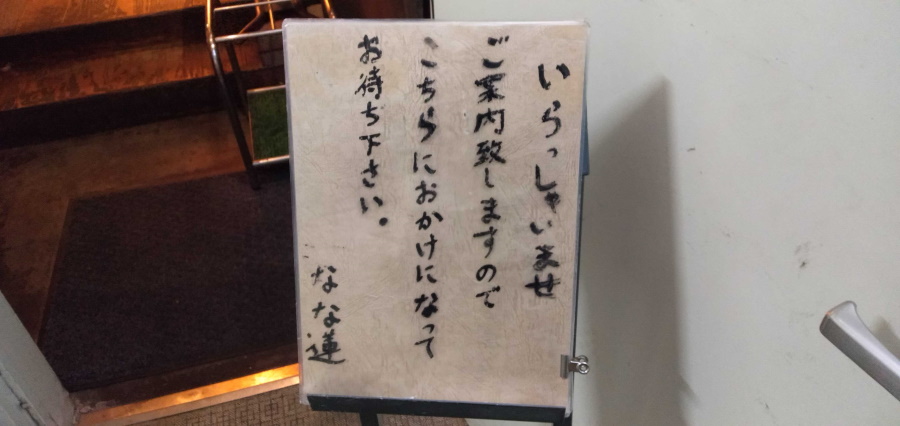 いらっしゃいませ
ご案内致しますので
こちらにおかけになって
お待ち下さい。
なな蓮